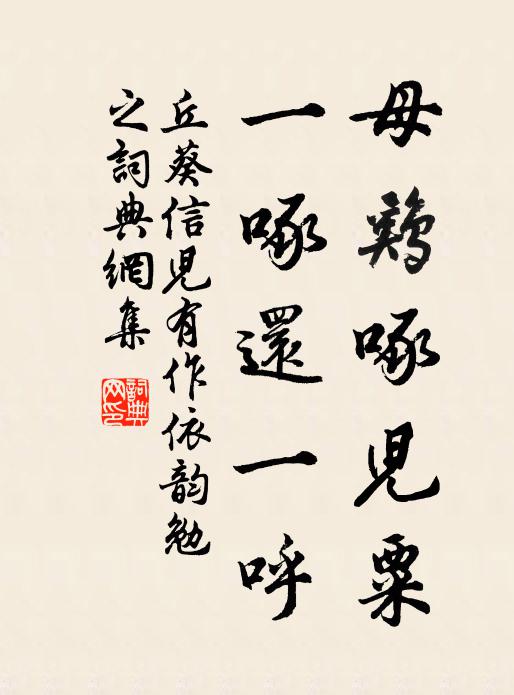 母鷄啄兒粟
一啄還一呼
丘葵信兒有作依韵勉
之詞典網集
詞典
网印